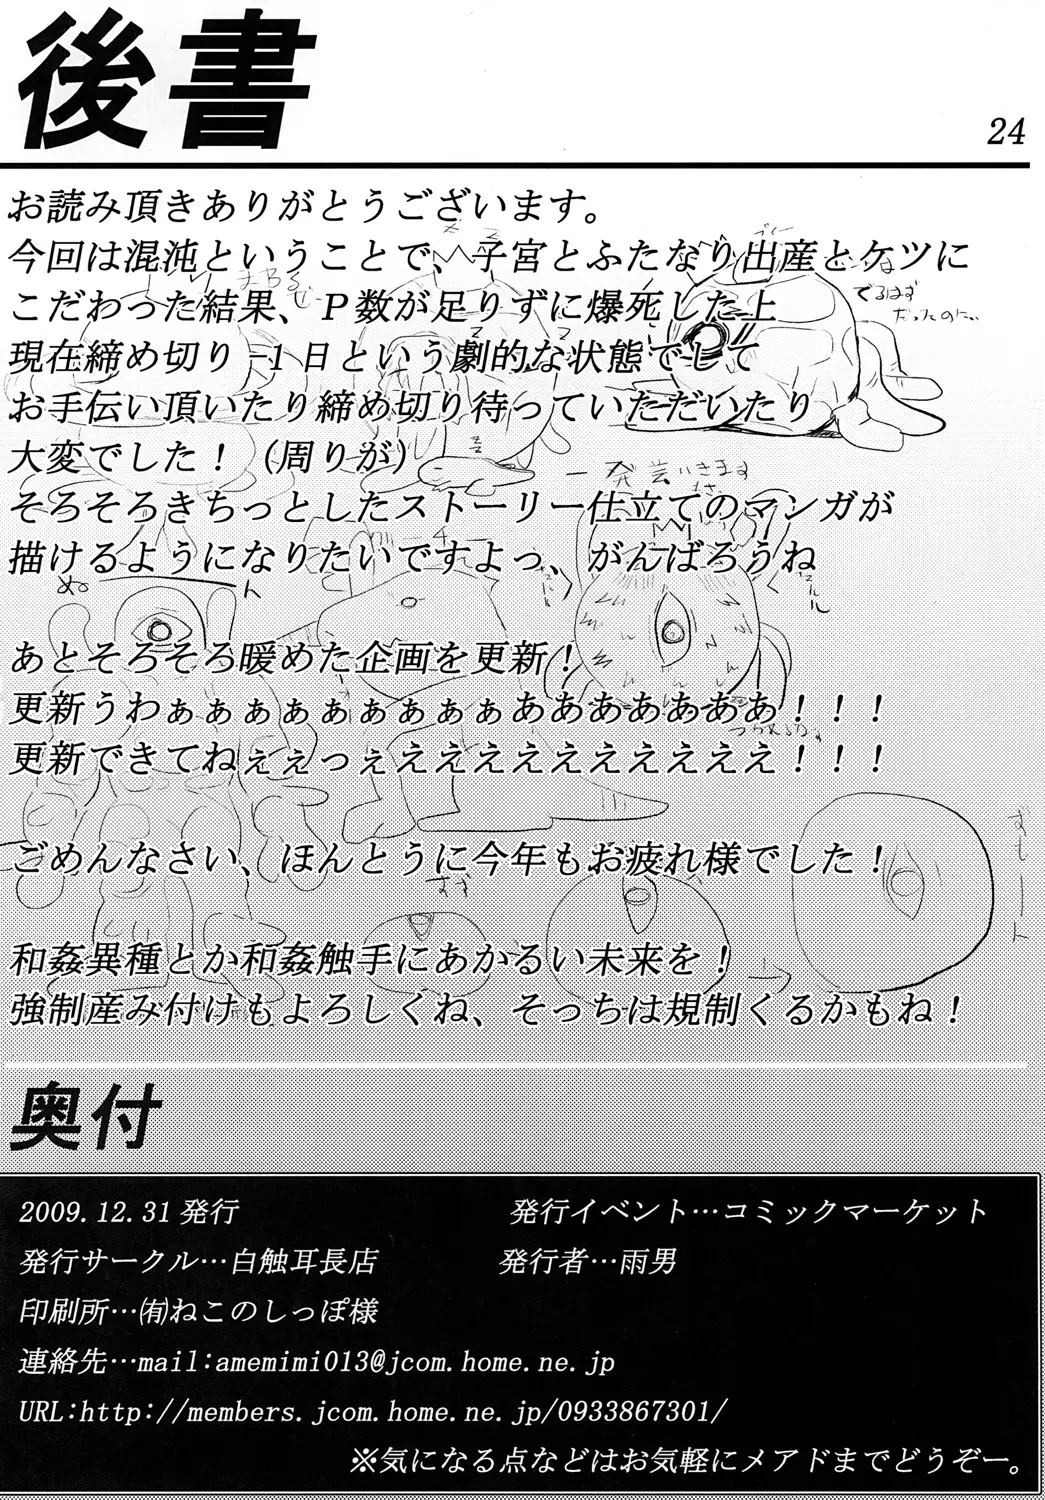 後書
24
お読み頂きありがとうございます。
今回は混沌ということで、子宮とふたなり出産とケツに
こだわった結果、Ｐ数が足りずに爆死した上
現在締め切り-1日という劇的な状態でして
お手伝い頂いたり締め切り待っていただいたり
大変でした！（周りが）
そろそろきちっとしたストーリー仕立てのマンガが
描けるようになりたいですよっ、がんばろうね
あとそろそろ暖めた企画を更新！
更新うわぁぁぁぁぁぁぁぁぁあああああああ！！！
更新できてねぇぇっぇええええええええええ！！！
ごめんなさい、ほんとうに今年もお疲れ様でした！
和姦異種とか和姦触手にあかるい未来を！
強制産み付けもよろしくね、そっちは規制くるかもね！
でるはず
だったのに…
一発芸いきます
ぬ
ん
ずもート
奥付
2009.12.31発行
発行イベント…コミックマーケット
発行サークル…白触耳長店
発行者…雨男
印刷所…㈲ねこのしっぽ様
連絡先…mail:amemimi013@jcom.home.ne.jp
URL:http://members.jcom.home.ne.jp/0933867301/
※気になる点などはお気軽にメアドまでどうぞー。